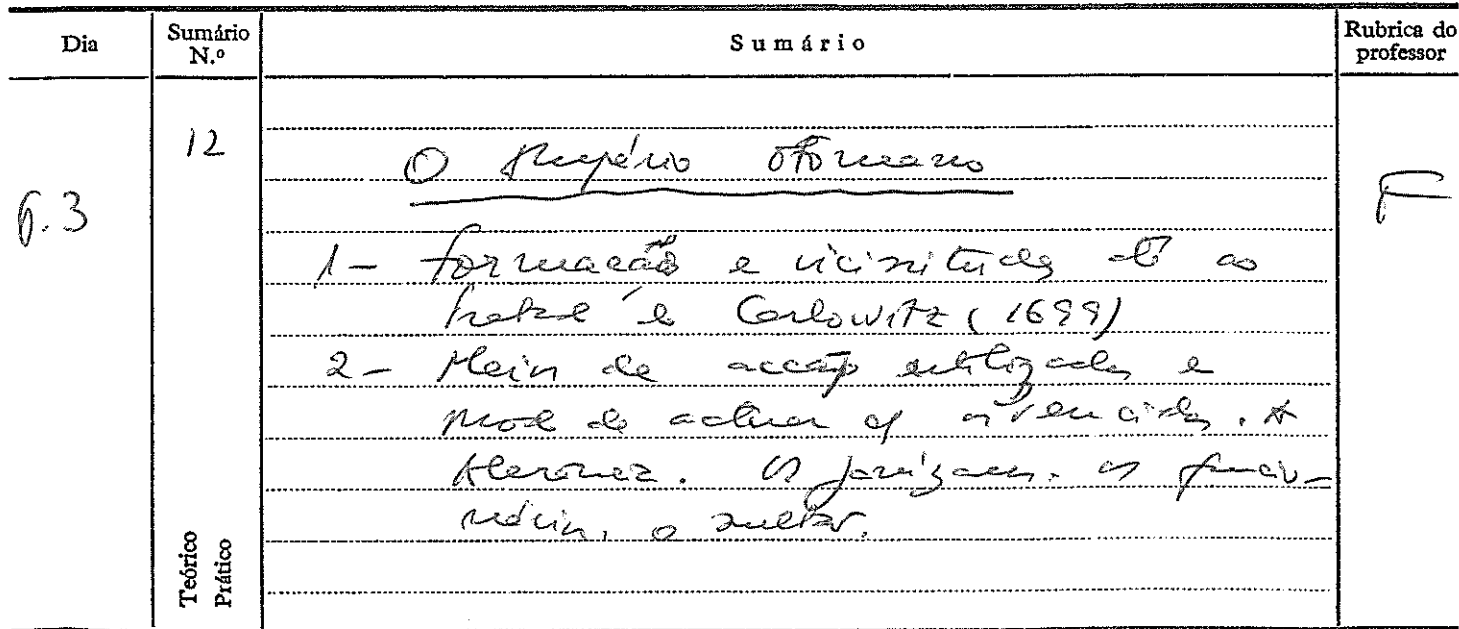 Dia
Sumário N.º
Sumário
Rubrica do professor
12
O Império Otomano
6.3
1 – Formação e vicissitudes até ao
tratado de Carlowitz (1699)
2 – Meios de acção utilizados e
modo de actuar c/ os vencidos. A
Os janízaros. os funcio-
nários, o sultão.
Teórico
Prático